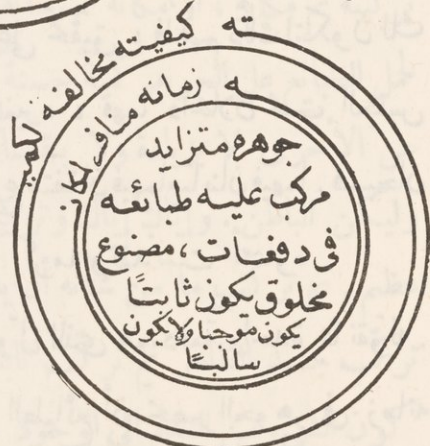 ته كيفيته مخالفة لكمي
ه زمانه منافر لمكانه
جوهره متزايد
مركب عليه طبائعه
فى دفعات ، مصنوع
مخلوق يكون ثابتًا
يكون موجبا ولا يكون
سالبًا